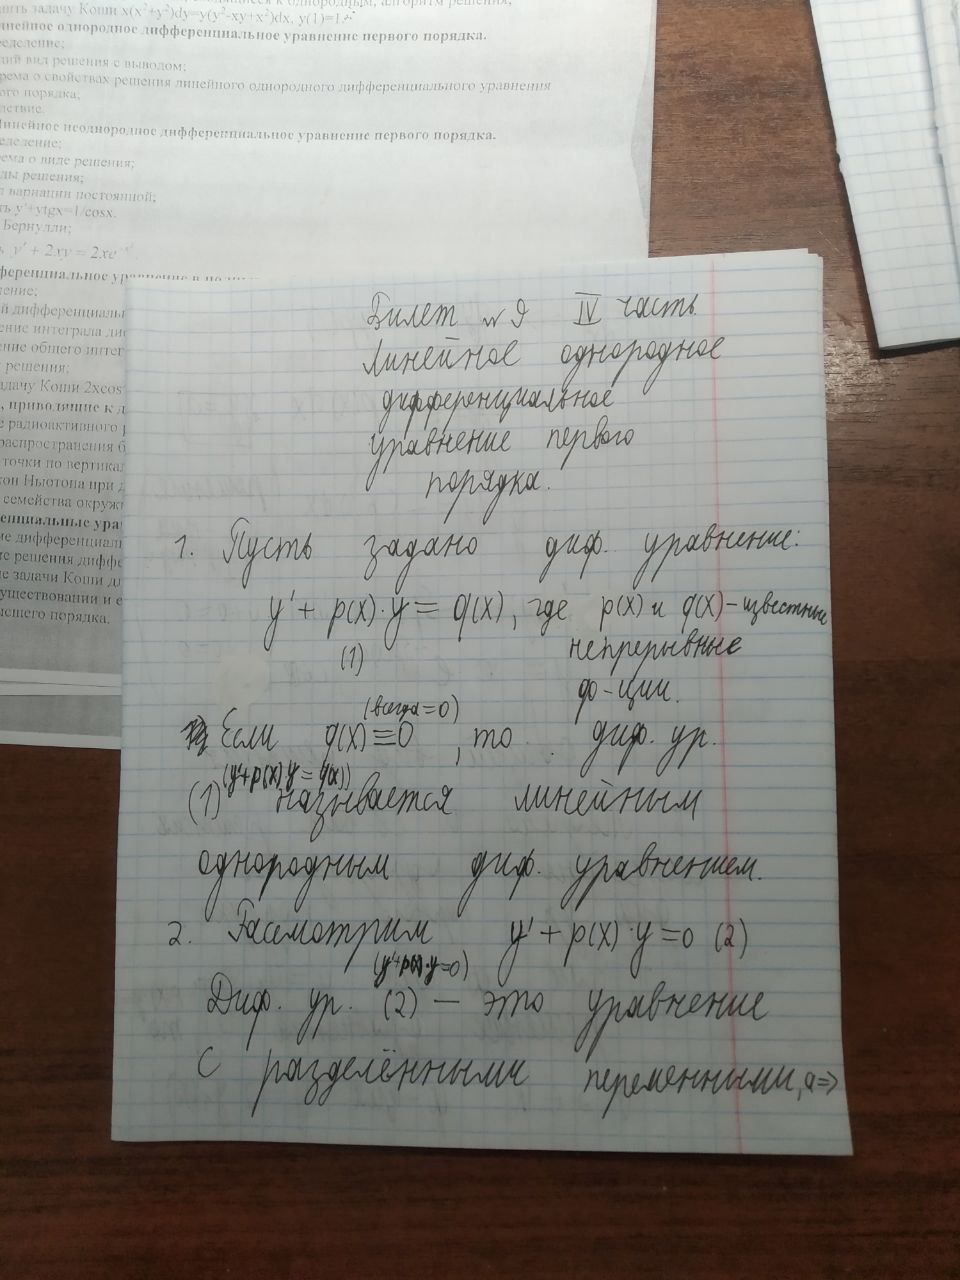 ить задачу Коши x(x²+y²)dy=y(y²-xy+x²)dx, y(1)=1.
инейное однородное дифференциальное уравнение первого порядка.
еделение;
щий вид решения с выводом;
рема о свойствах решения линейного однородного дифференциального уравнения
ого порядка;
дствие.
Линейное неоднородное дифференциальное уравнение первого порядка.
еделение;
ема о виде решения;
ды решения;
д вариации постоянной;
ть y'+ytgx=1/cosx.
Бернулли;
y' + 2xy = 2xe
ференциальное уравнение в
ение;
й дифференциаль
ение интеграла ди
ение общего интег
решения;
адачу Коши 2xcos
, приводящие к д
е радиоактивного р
распространения б
точки по вертикал
кон Ньютона при д
семейства окружн
енциальные ура
ие дифференциал
ие решения диффе
ие задачи Коши дл
уществовании и е
ысшего порядка.
Билет №9 IV часть
Линейное однородное
дифференциальное
уравнение первого
порядка.
1. Пусть задано диф. уравнение:
y' + p(x)·y = q(x), где p(x) и q(x) – известные
(1) непрерывные
ф-ции.
(всегда=0)
Если q(x)≡0, то диф. ур.
(y'+p(x)y=q(x))
(1) называется линейным
однородным диф. уравнением.
2. Рассмотрим y' + p(x)·y=0 (2)
(y'+p(x)·y=0)
Диф. ур. (2) – это уравнение
с разделёнными переменными, а=>